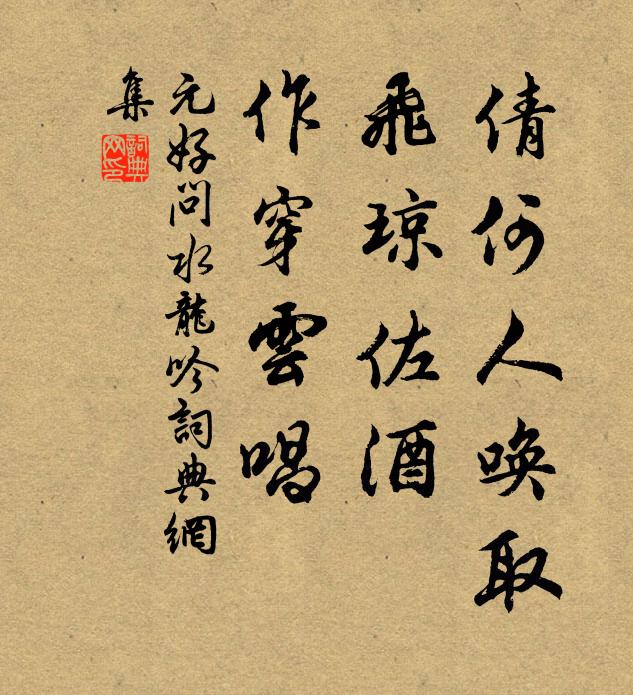 倩何人唤取
飛瓊佐酒
作穿雲唱
元好問水龍吟詞典網
集
詞典网印